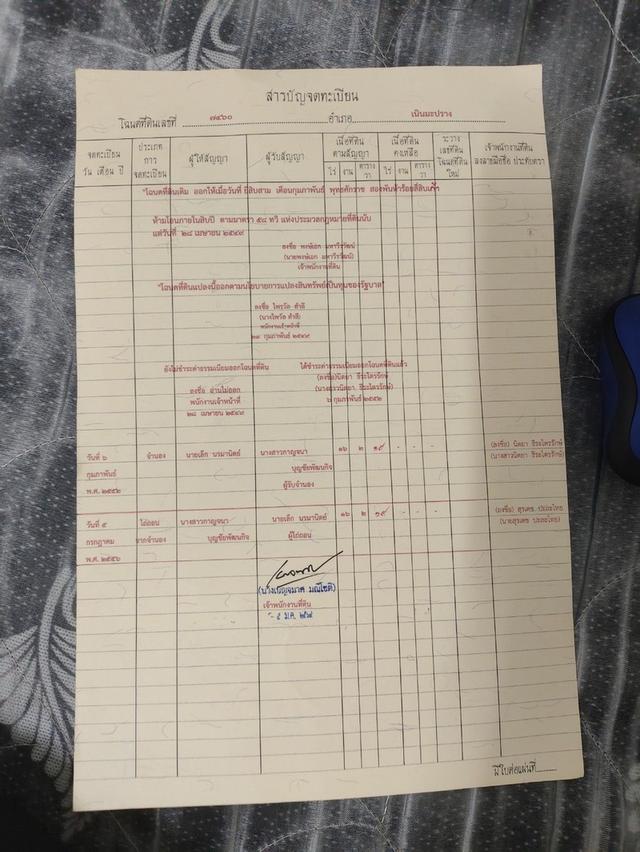 สารบัญจดทะเบียน
โฉนดที่ดินเลขที่ ๗๕๖๐ อำเภอ เนินมะปราง
จดทะเบียน วัน เดือน ปี
ประเภทการจดทะเบียน
ผู้ให้สัญญา
ผู้รับสัญญา
เนื้อที่ดินตามสัญญา
ไร่ งาน ตารางวา
เนื้อที่ดินคงเหลือ
ไร่ งาน ตารางวา
ระวาง เลขที่ดิน โฉนดที่ดินใหม่
เจ้าพนักงานที่ดิน ลงลายมือชื่อ ประทับตรา
"โฉนดที่ดินเดิม ออกให้เมื่อวันที่ ยี่สิบสาม เดือนกุมภาพันธ์ พุทธศักราช สองพันห้าร้อยสี่สิบเก้า"
ห้ามโอนภายในสิบปี ตามมาตรา ๕๘ ทวิ แห่งประมวลกฎหมายที่ดินนับ
แต่วันที่ ๒๘ เมษายน ๒๕๔๙
ลงชื่อ พงษ์เอก มหาวีรวัฒน์
(นายพงษ์เอก มหาวีรวัฒน์)
เจ้าพนักงานที่ดิน
"โฉนดที่ดินแปลงนี้ออกตามนโยบายการแปลงสินทรัพย์เป็นทุนของรัฐบาล"
ลงชื่อ ไพรวัล
พนักงานเจ้าหน้าที่
กุมภาพันธ์ ๒๕๔๙
ยังไม่ชำระค่าธรรมเนียมออกโฉนดที่ดิน
ลงชื่อ อ่านไม่ออก
พนักงานเจ้าหน้าที่
๒๘ เมษายน ๒๕๔๙
ได้ชำระค่าธรรมเนียมออกโฉนดที่ดินแล้ว
(ลงชื่อ)นิตยา ธีระไตรรักษ์
(นางสาวนิตยา ธีระไตรรักษ์)
๖ กุมภาพันธ์ ๒๕๕๒
วันที่ ๖ จำนอง นายเล็ก นรมานิตย์ นางสาวกาญจนา ๑๖ ๒ ๑๙ - - - (ลงชื่อ) นิตยา ธีระไตรรักษ์
กุมภาพันธ์ บุญชัยพัฒนกิจ (นางสาวนิตยา ธีระไตรรักษ์)
พ.ศ. ๒๕๕๒ ผู้รับจำนอง
วันที่ ๕ ไถ่ถอน นางสาวกาญจนา นายเล็ก นรมานิตย์ ๑๖ ๒ ๑๙ - - - (ลงชื่อ) สุรเดช ปะละไทย
กรกฎาคม จากจำนอง บุญชัยพัฒนกิจ ผู้ไถ่ถอน (นายสุรเดช ปะละไทย)
พ.ศ. ๒๕๕๖
(นางเบญจมาศ มณีโชติ)
เจ้าพนักงานที่ดิน
ม.ค.
มีใบต่อแผ่นที่